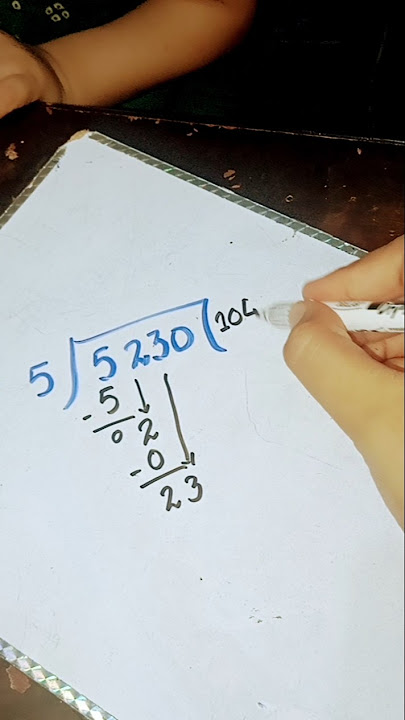 5 ) 5230 ( 104
- 5
0 2
- 0
23